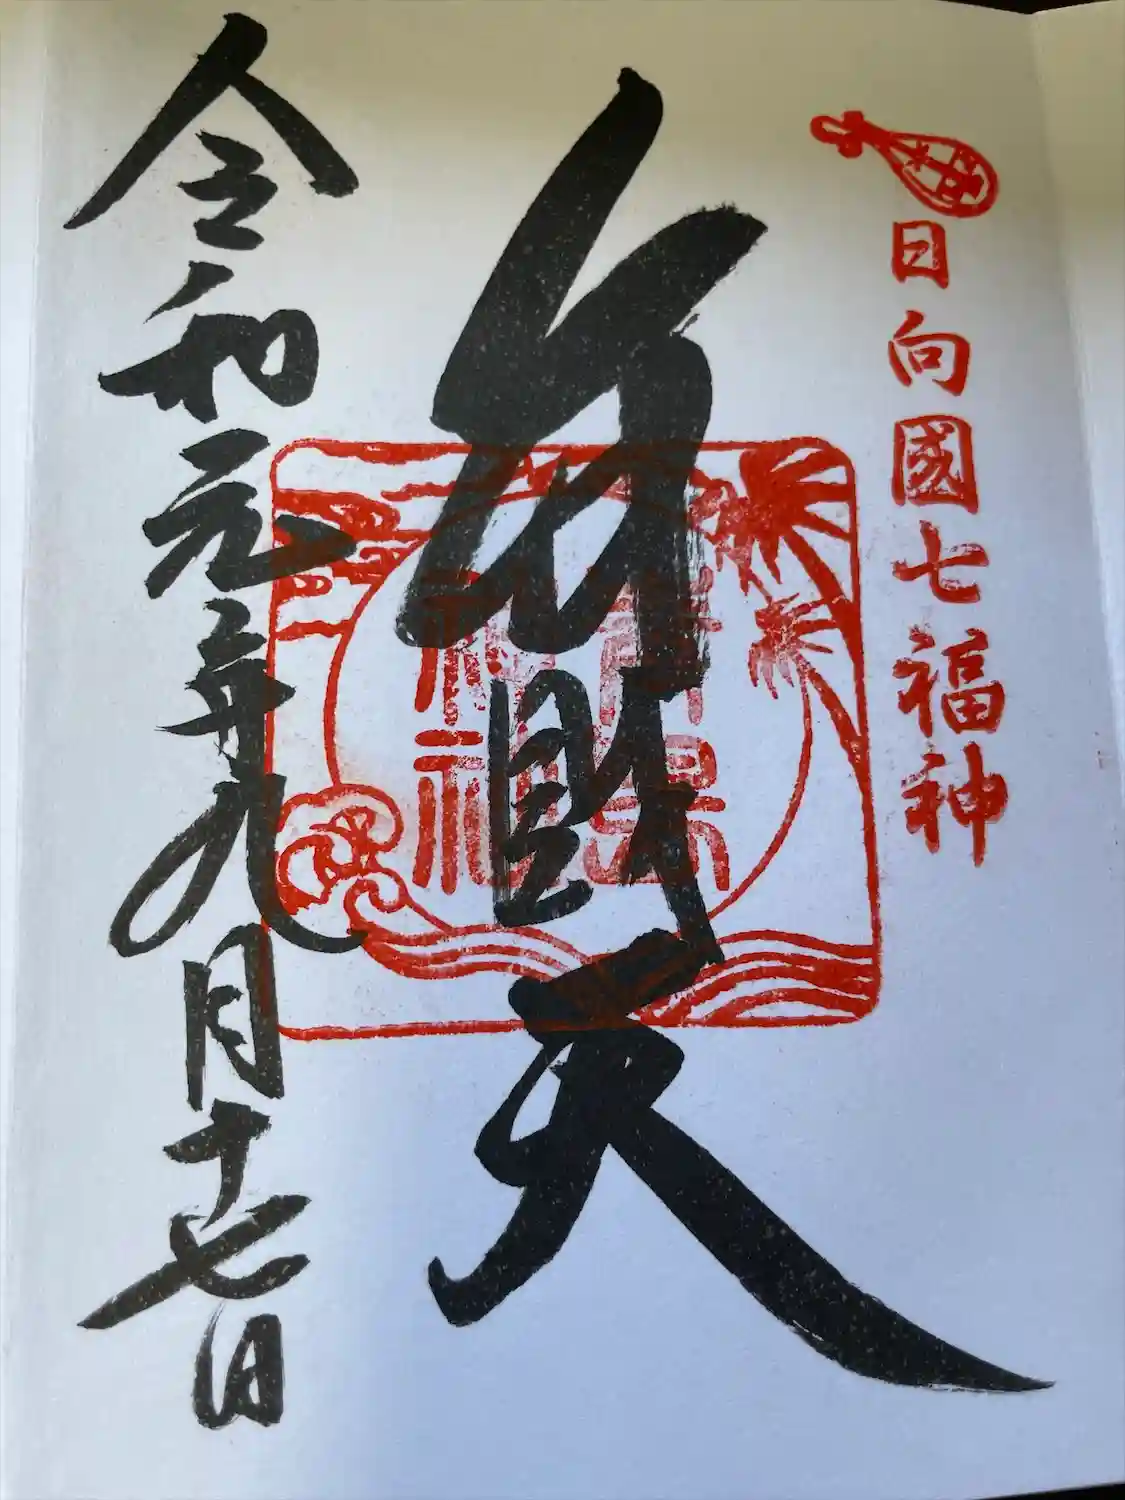 日向國七福神
弁財天
令和元年九月十七日